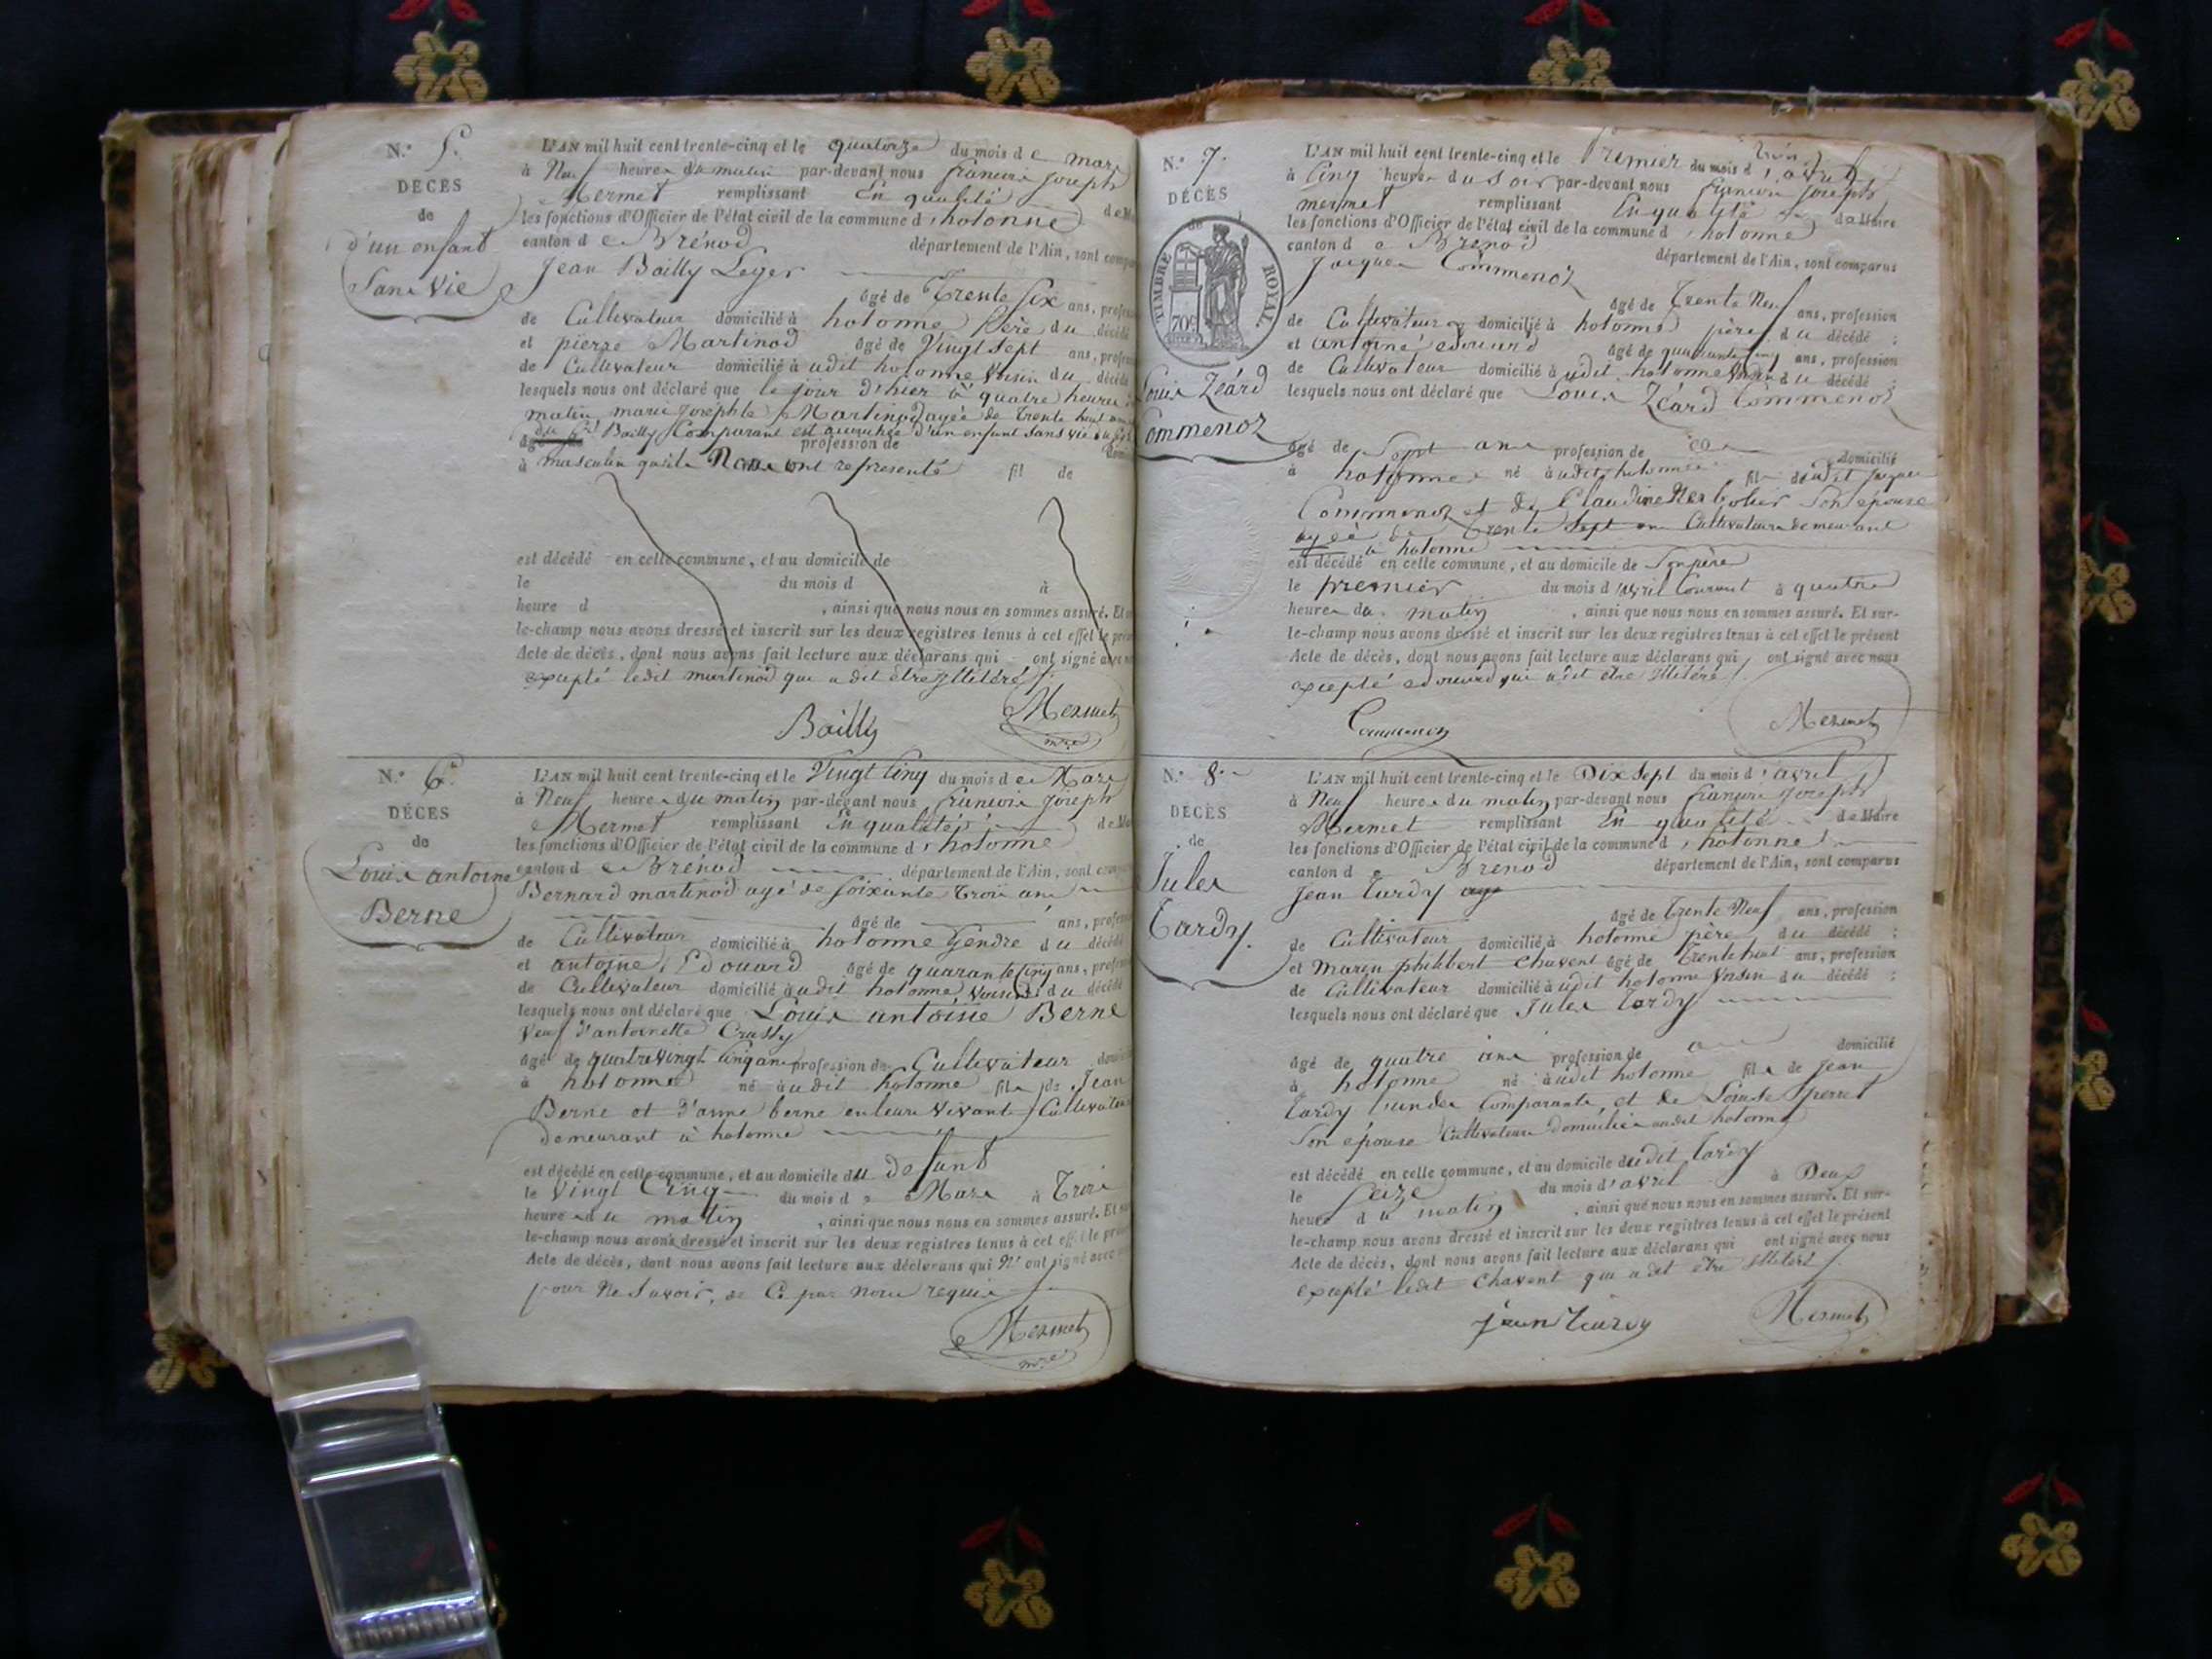 N.° 5.
DÉCÈS
de
d'un enfant
Sans Vie
L'AN mil huit cent trente-cinq et le quatorze du mois de mars
à Neuf heures du matin par-devant nous françois joseph
Mermet remplissant En qualité de M
les fonctions d'Officier de l'état civil de la commune d'hotonne
canton de Brénod département de l'Ain, sont compa
Jean Bailly Leger
âgé de Trente Six ans, profes
de Cultivateur domicilié à hotonne Père du décédé
et pierre Martinod âgé de Vingt Sept ans, profes
de Cultivateur domicilié à udit hotonne Voisin du décédé
lesquels nous ont déclaré que le jour d'hier à quatre heures
matin marie josephte Martinod agée de Trente huit ans
du Bailly Comparant est accouchée d'un enfant Sans vie
profession de
à masculin qu'ils Nous ont représenté fil de
est décédé en cette commune, et au domicile de
le du mois d à
heure d , ainsi que nous nous en sommes assuré. Et
le-champ nous avons dressé et inscrit sur les deux registres tenus à cet effet le pré
Acte de décès, dont nous avons fait lecture aux déclarans qui ont signé avec
excepté ledit martinod qui a dit être illitéré
Bailly Mermet
mre
N.° 6.
DÉCÈS
de
Louis antoine
Berne
L'AN mil huit cent trente-cinq et le Vingt Cinq du mois de Mars
à Neuf heures du matin par-devant nous françois joseph
Mermet remplissant En qualité de M
les fonctions d'Officier de l'état civil de la commune d'hotonne
canton de Brénod département de l'Ain, sont
Bernard martinod agé de Soixante Trois ans
âgé de ans, profes
de Cultivateur domicilié à hotonne Gendre du décédé
et antoine Edouard âgé de quarante Cinq ans, profes
de Cultivateur domicilié à udit hotonne Voisin du décédé
lesquels nous ont déclaré que Louis antoine Berne
Veuf d'antoinette
âgé de quatre Vingt Cinq ans profession de Cultivateur
à hotonne né à udit hotonne fils de Jean
Berne et d'anne berne en leurs Vivants Cultivateurs
demeurant à hotonne
est décédé en cette commune, et au domicile du defunt
le Vingt Cinq du mois de Mars à Trois
heures du matin , ainsi que nous nous en sommes assuré. Et
le-champ nous avons dressé et inscrit sur les deux registres tenus à cet effet le pré
Acte de décès, dont nous avons fait lecture aux déclarans qui N'ont signé avec
pour Ne Savoir, de Ce par nous requis
Mermet
mre
N.° 7.
DÉCÈS
de
TIMBRE ROYAL
70c
Louis Zéard
Commenoz
L'AN mil huit cent trente-cinq et le Premier du mois d'avril
à Cinq heures du Soir par-devant nous françois joseph
mermet remplissant En qualité de Maire
les fonctions d'Officier de l'état civil de la commune d'hotonne
canton de Brénod département de l'Ain, sont comparus
jacques Commenoz
âgé de Trente Neuf ans, profession
de Cultivateur domicilié à hotonne père du décédé ;
et antoine edouard âgé de quarante cinq ans, profession
de Cultivateur domicilié à udit hotonne Voisin du décédé ;
lesquels nous ont déclaré que Louis Zéard Commenoz
âgé de Sept ans profession de domicilié
à hotonne né à udit hotonne fils dudit jacques
Commenoz et de Claudine Son épouse
agée de Trente Sept ans Cultivateurs demeurant
à hotonne
est décédé en cette commune, et au domicile de Son père
le premier du mois d'avril Courant à quatre
heures du matin , ainsi que nous nous en sommes assuré. Et sur-
le-champ nous avons dressé et inscrit sur les deux registres tenus à cet effet le présent
Acte de décès, dont nous avons fait lecture aux déclarans qui ont signé avec nous
excepté edouard qui a dit être illitéré
Commenoz Mermet
N.° 8.
DÉCÈS
de
Jules
Tardy.
L'AN mil huit cent trente-cinq et le Dix Sept du mois d'avril
à Neuf heures du matin par-devant nous françois joseph
Mermet remplissant En qualité de Maire
les fonctions d'Officier de l'état civil de la commune d'hotonne
canton de Brénod département de l'Ain, sont comparus
Jean Tardy
âgé de Trente Neuf ans, profession
de Cultivateur domicilié à hotonne père du décédé ;
et Marin philibert Chavent âgé de Trente huit ans, profession
de Cultivateur domicilié à udit hotonne Voisin du décédé ;
lesquels nous ont déclaré que Jules Tardy
âgé de quatre ans profession de domicilié
à hotonne né à udit hotonne fils de Jean
Tardy l'un des Comparants, et de Louise perret
Son épouse Cultivateurs domiciliés audit hotonne
est décédé en cette commune, et au domicile dudit Tardy
le Seize du mois d'avril à Deux
heures du matin , ainsi que nous nous en sommes assuré. Et sur-
le-champ nous avons dressé et inscrit sur les deux registres tenus à cet effet le présent
Acte de décès, dont nous avons fait lecture aux déclarans qui ont signé avec nous
excepté ledit Chavent qui a dit être illitéré
jean Tardy Mermet